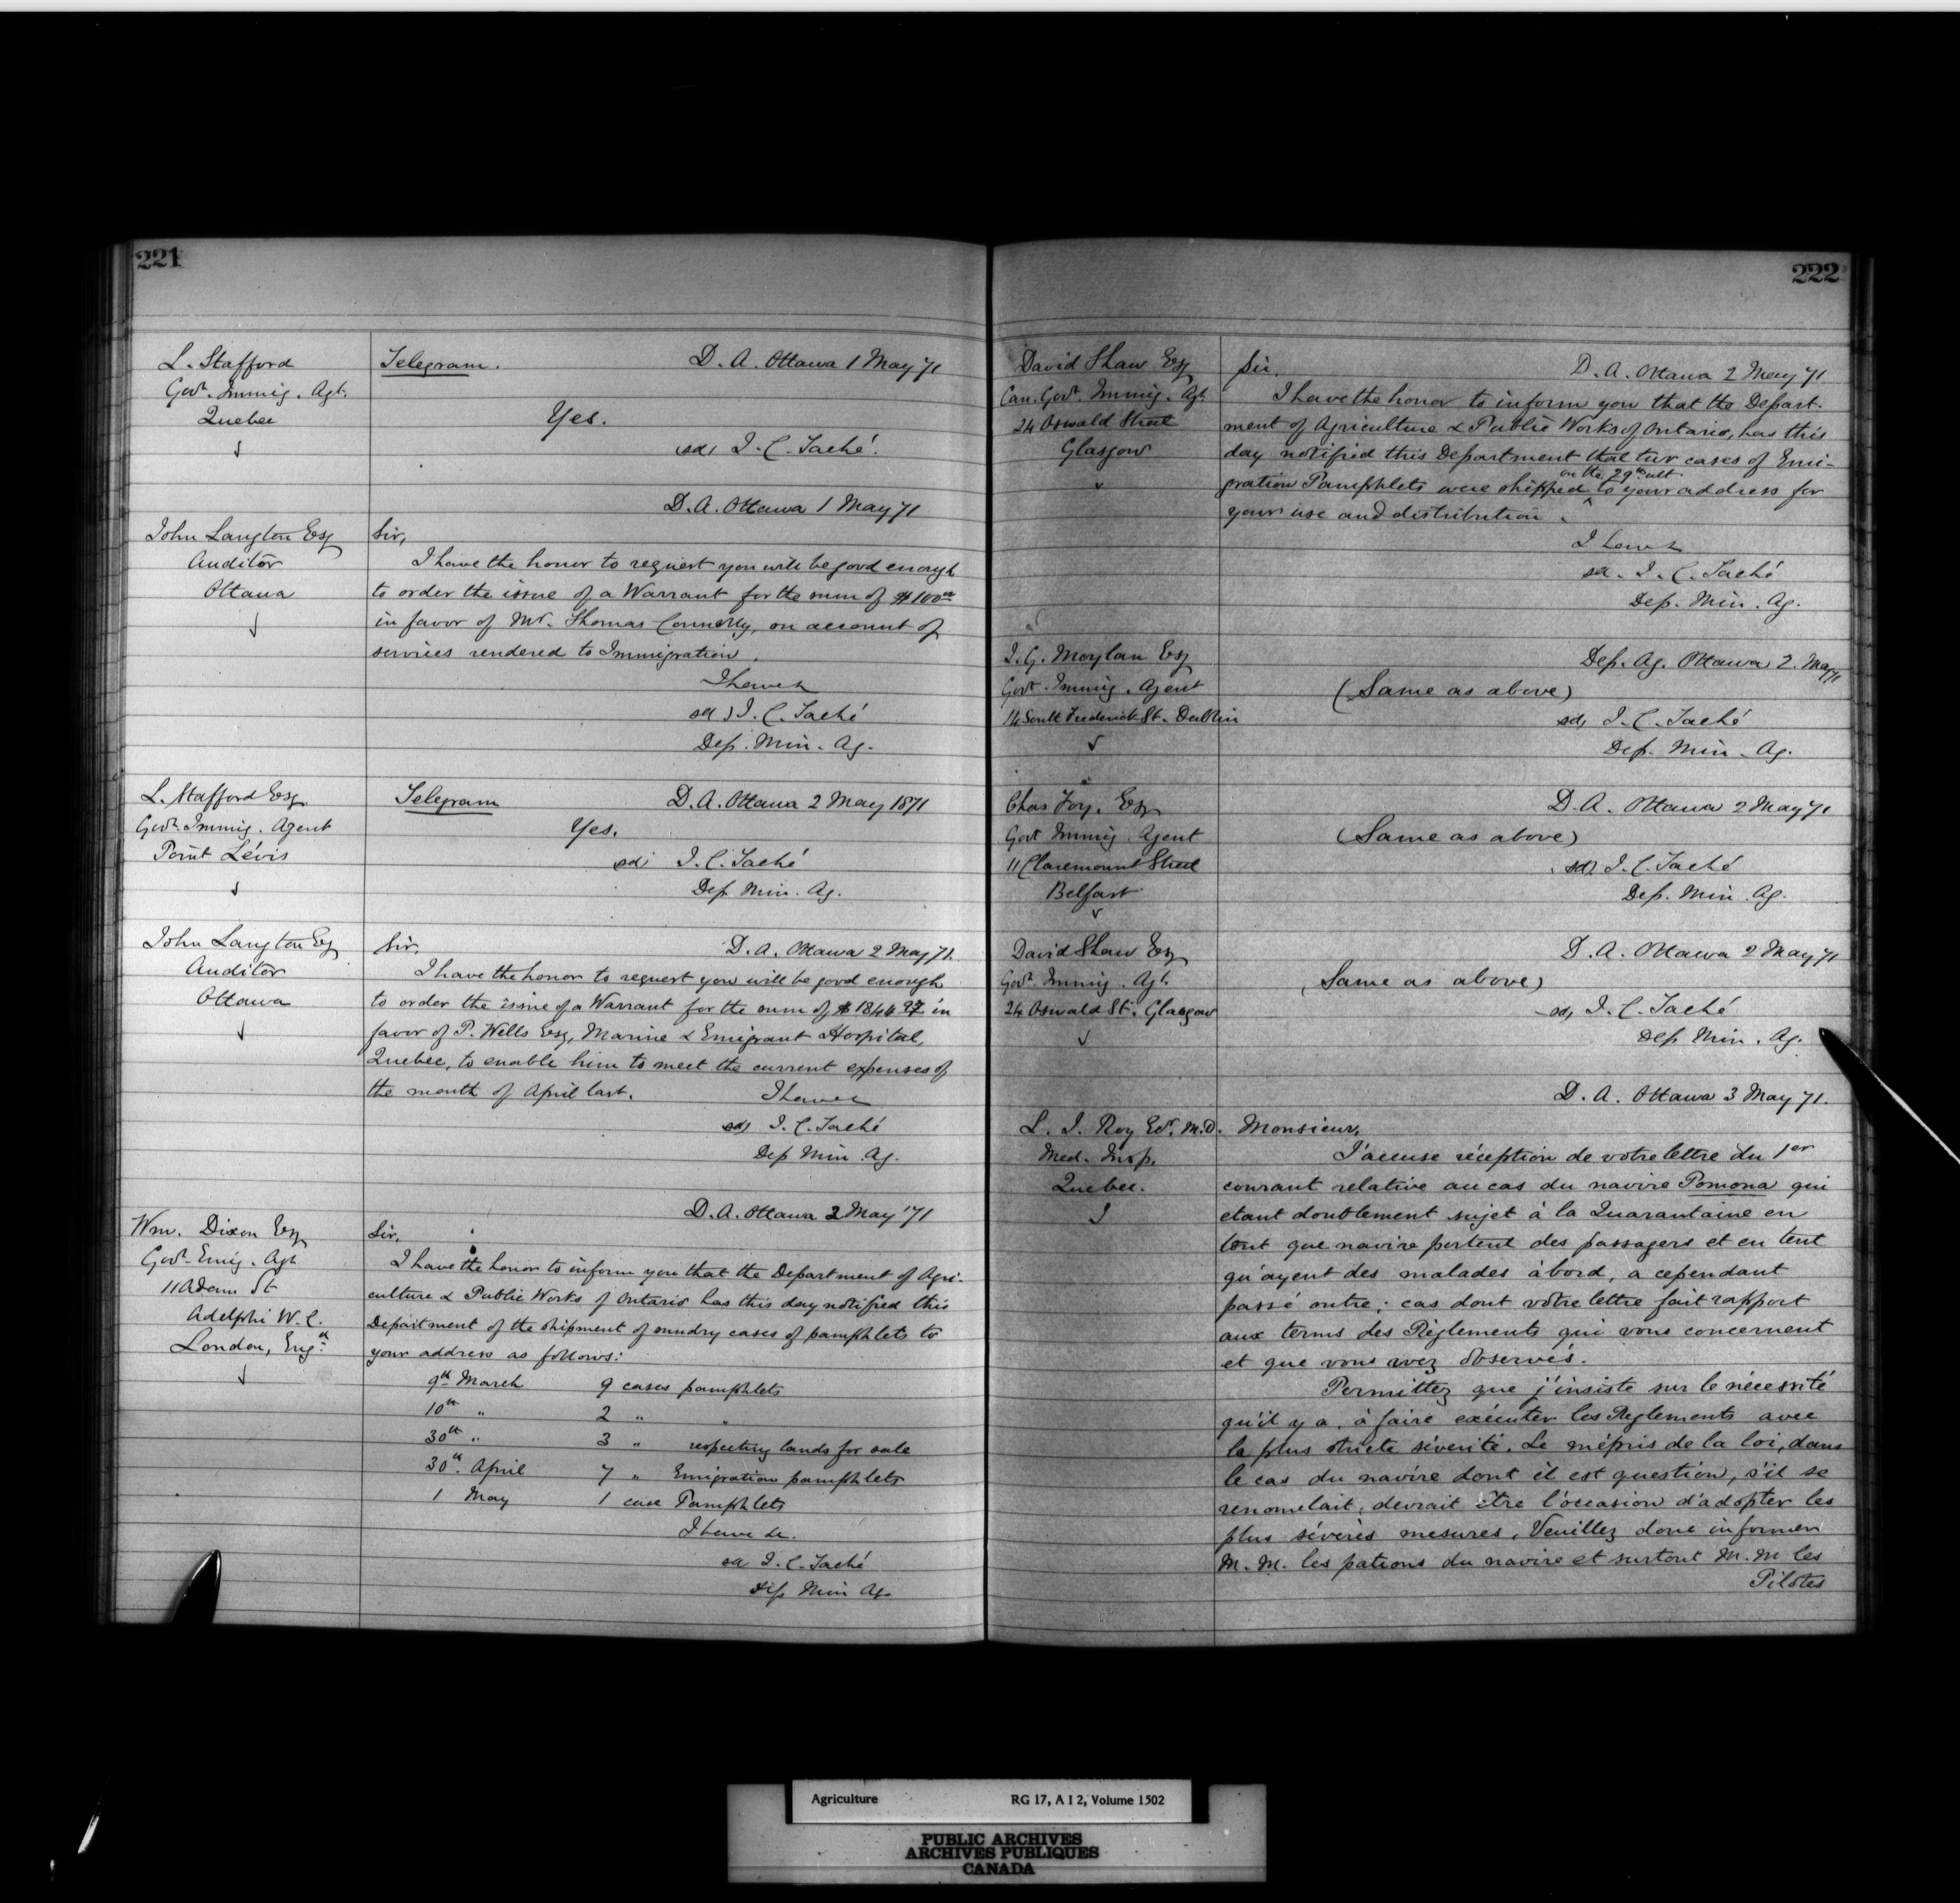 221
L. Stafford
Govt. Immig. Agt.
Quebec
Telegram. D. A. Ottawa 1 May 71
Yes.
sd, J. C. Taché.
D. A. Ottawa 1 May 71
John Langton Esq
Auditor
Ottawa
Sir,
I have the honor to request you will be good enough
to order the issue of a Warrant for the sum of $100.00
in favor of Mr. Thomas Connolly, on account of
services rendered to Immigration.
I have &
sd) J. C. Taché
Dep. Min. Ag.
L. Stafford Esq.
Govt. Immig. Agent
Point Lévis
Telegram D. A. Ottawa 2 May 1871
Yes.
sd, J. C. Taché
Dep. Min. Ag.
John Langton Esq
Auditor
Ottawa
Sir, D. A. Ottawa 2 May 71.
I have the honor to request you will be good enough
to order the issue of a Warrant for the sum of $1844 97 in
favor of P. Wells Esq, Marine & Emigrant Hospital,
Quebec, to enable him to meet the current expenses of
the month of April last. I have &
sd) J. C. Taché
Dep Min. Ag.
D. A. Ottawa 2 May '71
Wm. Dixon Esq
Govt. Emig. Agt
11 Adam St
Adelphi W. C.
London, Engd.
Sir.
I have the honor to inform you that the Department of Agri-
culture & Public Works of Ontario has this day notified this
Department of the shipment of sundry cases of pamphlets to
your address as follows:
9th March 9 cases pamphlets
10th " 2 " "
30th " 3 " respecting lands for sale
30th. April 7 " Emigration pamphlets
1 May 1 case Pamphlets
I have &c.
sd J. C. Taché
Dep Min Ag.
222
David Shaw Esq
Can. Govt. Immig. Agt.
24 Oswald Street
Glasgow
Sir. D. A. Ottawa 2 May 71
I have the honor to inform you that the Depart-
ment of Agriculture & Public Works of Ontario, has this
day notified this Department that two cases of Emi-
on the 29th ult
gration Pamphlets were shipped ^ to your address for
your use and distribution.
I have &
sd. J. C. Taché
Dep. Min. Ag.
J. G. Moylan Esq
Govt. Immig. Agent
14 South Frederick St. Dublin
Dep. Ag. Ottawa 2. May 71
(Same as above)
sd, J. C. Taché
Dep. Min. Ag.
Chas Foy. Esq
Govt Immig. Agent
11 Claremount Street
Belfast
D. A. Ottawa 2 May 71
(Same as above)
sd) J. C. Taché
Dep. Min. Ag.
David Shaw Esq
Govt. Immig. Agt.
24 Oswald St. Glasgow
D. A. Ottawa 2 May 71
(Same as above)
sd, J. C. Taché
Dep Min. Ag.
D. A. Ottawa 3 May 71.
L. J. Roy Ecr. M.D.
Med. Insp.
Quebec.
Monsieur,
J'accuse réception de votre lettre du 1er
courant relative au cas du navire Pomona qui
etant doublement sujet à la Quarantaine en
tant que navire portent des passagers et en tent
qu'ayent des malades àbord, a cependant
passé outre; cas dont votre lettre fait rapport
aux terms des Règlements qui vous concernent
et que vous avez observés.
Permittez que j'insiste sur le nécessité
qu'il y a, à faire exécuter les Reglements avec
la plus stricte séverité. Le mépris de la loi, dans
le cas du navire dont il est question, s'il se
renomelait, devrait être l'occasion d'adopter les
plus sévères mesures. Veuillez donc informer
M. M. les patrons du navire et surtout M. M les
Pilotes
Agriculture RG 17, A I 2, Volume 1502
PUBLIC ARCHIVES
ARCHIVES PUBLIQUES
CANADA